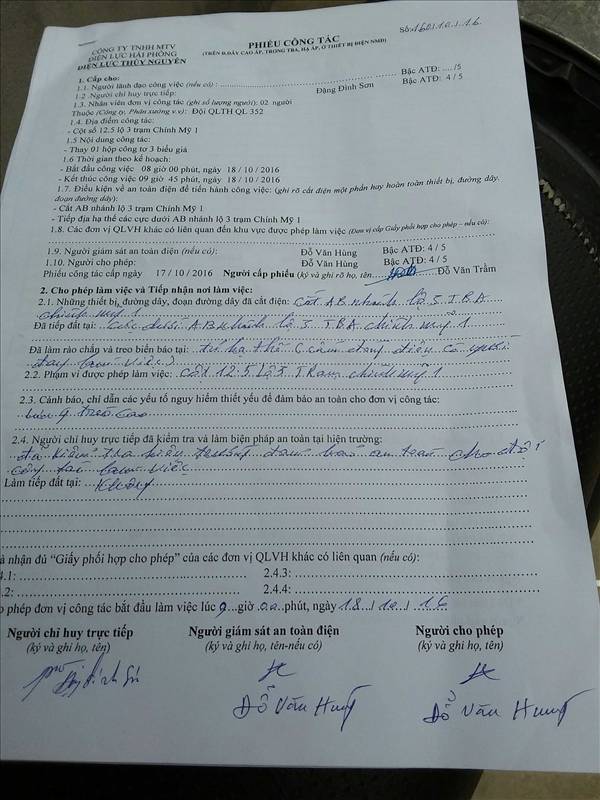 Số: 160/10/16
CÔNG TY TNHH MTV
ĐIỆN LỰC HẢI PHÒNG
ĐIỆN LỰC THỦY NGUYÊN
PHIẾU CÔNG TÁC
(TRÊN Đ.DÂY CAO ÁP, TRUNG, HẠ ÁP, Ở THIẾT BỊ ĐIỆN NMĐ)
1. Cấp cho:
1.1. Người lãnh đạo công việc (nếu có) : Bậc ATĐ: ..../5
1.2 .Người chỉ huy trực tiếp: Đặng Đình Sơn Bậc ATĐ: 4 / 5
1.3. Nhân viên đơn vị công tác (ghi số lượng người): 02 người
Thuộc (Công ty, Phân xưởng v.v): Đội QLTH QL 352
1.4. Địa điểm công tác:
- Cột số 12.5 lộ 3 trạm Chinh Mỹ 1
1.5 Nội dung công tác:
- Thay 01 hộp công tơ 3 biểu giá
1.6 Thời gian theo kế hoạch:
- Bắt đầu công việc 08 giờ 00 phút, ngày 18 / 10 / 2016
- Kết thúc công việc 09 giờ 45 phút, ngày 18 / 10 / 2016
1.7. Điều kiện về an toàn điện để tiến hành công việc: (ghi rõ cắt điện một phần hay hoàn toàn thiết bị, đường dây,
đoạn đường dây)
- Cắt AB nhánh lộ 3 trạm Chinh Mỹ 1
- Tiếp địa hạ thế các cực dưới AB nhánh lộ 3 trạm Chinh Mỹ 1
1.8. Các đơn vị QLVH khác có liên quan đến khu vực được phép làm việc (Đơn vị cấp Giấy phối hợp cho phép – nếu có):
1.9. Người giám sát an toàn điện (nếu có): Đỗ Văn Hùng Bậc ATĐ: 4 / 5
1.10. Người cho phép: Đỗ Văn Hùng Bậc ATĐ: 4 / 5
Phiếu công tác cấp ngày 17 / 10 / 2016 Người cấp phiếu (ký và ghi rõ họ, tên Đỗ Văn Trầm
2. Cho phép làm việc và Tiếp nhận nơi làm việc:
2.1. Những thiết bị, đường dây, đoạn đường dây đã cắt điện: Cắt AB nhánh lộ 3 TBA
chinh mỹ 1
Đã tiếp đất tại: Cực dưới AB nhánh lộ 3 TBA chinh mỹ 1
Đã làm rào chắn và treo biển báo tại: tủ hạ thế (cấm đóng điện có người
đang làm việc)
2.2. Phạm vi được phép làm việc: Cột 12.5 lộ 3 Trạm chinh mỹ 1
2.3. Cảnh báo, chỉ dẫn các yếu tố nguy hiểm thiết yếu để đảm bảo an toàn cho đơn vị công tác:
trèo cao
2.4. Người chỉ huy trực tiếp đã kiểm tra và làm biện pháp an toàn tại hiện trường:
đã kiểm tra hiện trường đảm bảo an toàn cho đội
công tác làm việc
Làm tiếp đất tại: không
à nhận đủ “Giấy phối hợp cho phép” của các đơn vị QLVH khác có liên quan (nếu có):
4.1: 2.4.3:
.2: 2.4.4:
o phép đơn vị công tác bắt đầu làm việc lúc 9 giờ 00 phút, ngày 18 / 10 / 16
Người chỉ huy trực tiếp Người giám sát an toàn điện Người cho phép
(ký và ghi họ, tên) (ký và ghi họ, tên-nếu có) (ký và ghi họ, tên)
Đỗ Văn Hùng Đỗ Văn Hùng